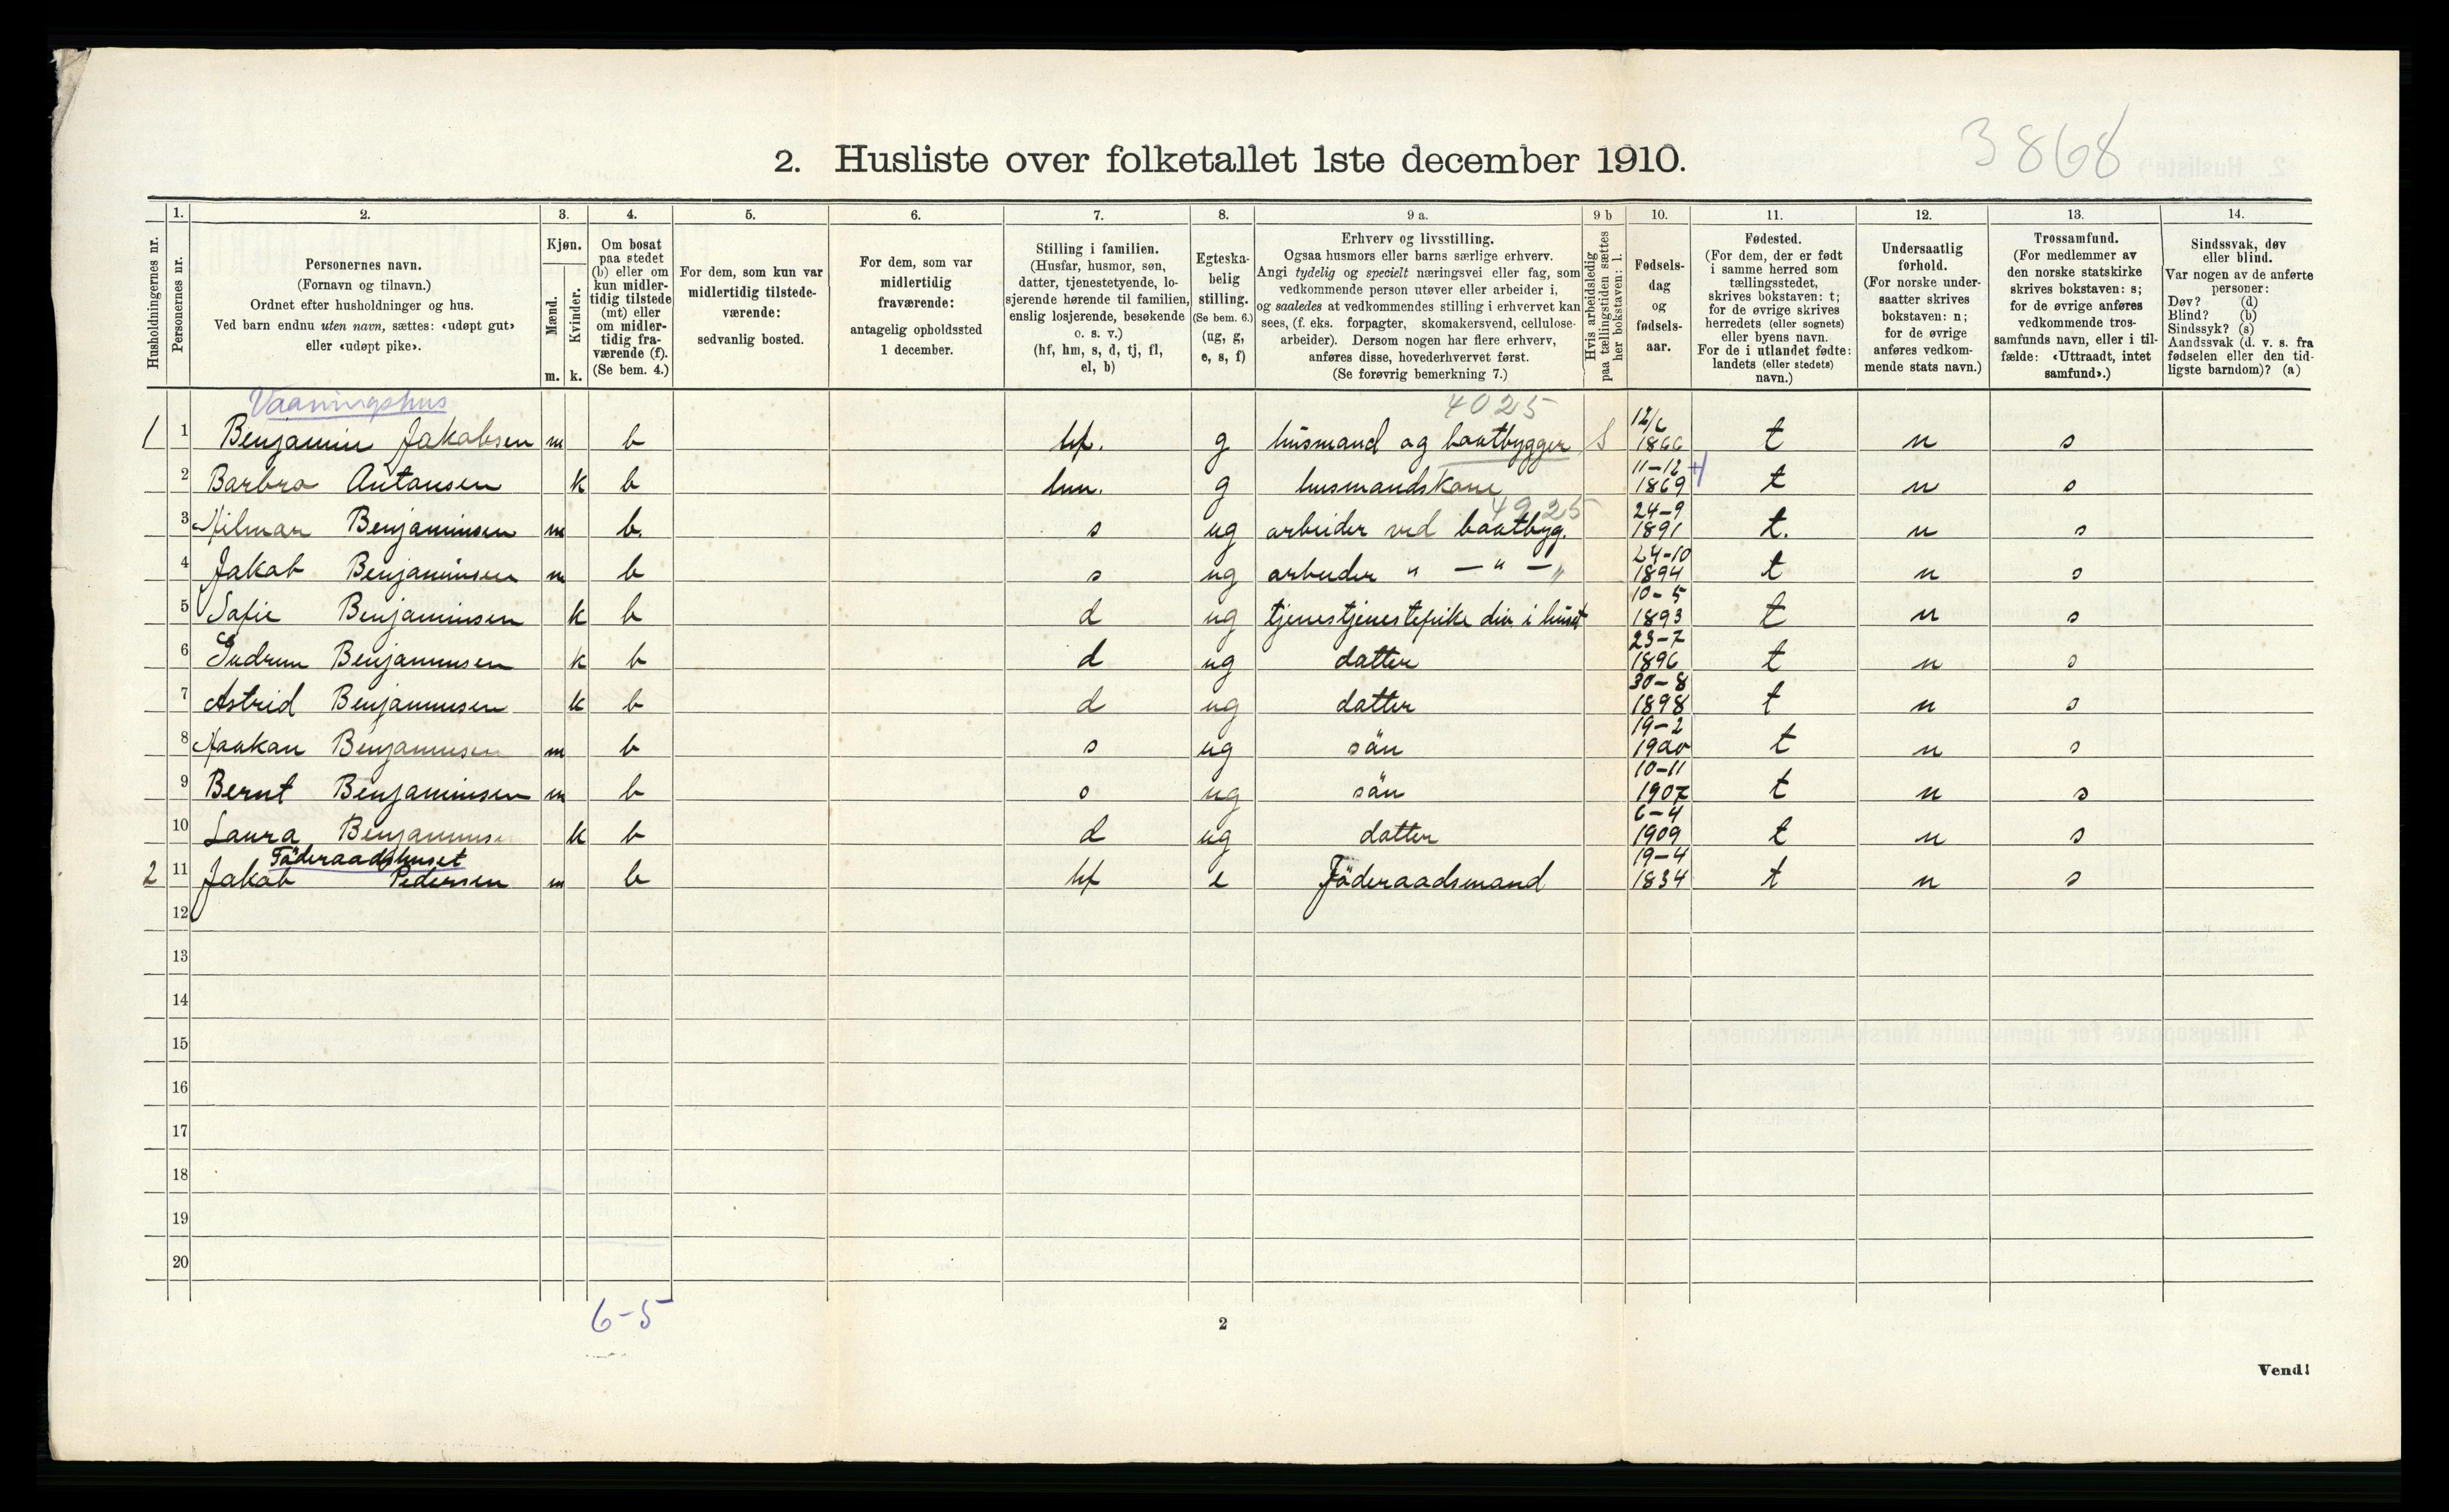 3868
2. Husliste over folketallet 1ste december 1910.
Husholdningernes nr.
1.
Personernes nr.
2.
Personernes navn.
(Fornavn og tilnavn.)
Ordnet efter husholdninger og hus.
Ved barn endnu uten navn, sættes: «udøpt gut»
eller «udøpt pike».
3.
Kjøn.
Mænd.
Kvinder.
m. k.
4.
Om bosat
paa stedet
(b) eller om
kun midler-
tidig tilstede
(mt) eller
om midler-
tidig fra-
værende (f).
(Se bem. 4.)
5.
For dem, som kun var
midlertidig tilstede-
værende:
sedvanlig bosted.
6.
For dem, som var
midlertidig
fraværende:
antagelig opholdssted
1 december.
7.
Stilling i familien.
(Husfar, husmor, søn,
datter, tjenestetyende, lo-
sjerende hørende til familien,
enslig losjerende, besøkende
o. s. v.)
(hf, hm, s, d, tj, fl,
el, b)
8.
Egteska-
belig
stilling.
(Se bem. 6.)
(ug, g,
e, s, f)
9 a.
Erhverv og livsstilling.
Ogsaa husmors eller barns særlige erhverv.
Angi tydelig og specielt næringsvei eller fag, som
vedkommende person utøver eller arbeider i,
og saaledes at vedkommendes stilling i erhvervet kan
sees, (f. eks. forpagter, skomakersvend, cellulose-
arbeider). Dersom nogen har flere erhverv,
anføres disse, hovederhvervet først.
(Se forøvrig bemerkning 7.)
9 b
Hvis arbeidsledig
paa tællingstiden sættes
her bokstaven: l.
10.
Fødsels-
dag
og
fødsels-
aar.
11.
Fødested.
(For dem, der er født
i samme herred som
tællingsstedet,
skrives bokstaven: t;
for de øvrige skrives
herredets (eller sognets)
eller byens navn.
For de i utlandet fødte:
landets (eller stedets)
navn.)
12.
Undersaatlig
forhold.
(For norske under-
saatter skrives
bokstaven: n;
for de øvrige
anføres vedkom-
mende stats navn.)
13.
Trossamfund.
(For medlemmer av
den norske statskirke
skrives bokstaven: s;
for de øvrige anføres
vedkommende tros-
samfunds navn, eller i til-
fælde: «Uttraadt, intet
samfund».)
14.
Sindssvak, døv
eller blind.
Var nogen av de anførte
personer:
Døv? (d)
Blind? (b)
Sindssyk? (s)
Aandssvak (d. v. s. fra
fødselen eller den tid-
ligste barndom)? (a)
Vaaningshus
4025
1 1 Benjamin Jakobsen m b hf. g husmand og baatbygger S 12/6 1866 t n s
2 Barbra Antonsen k b hm. g husmandskone 11-12 1869 t n s
4925
3 Hilmar Benjaminsen m b. s ug arbeider ved baatbyg. 24-9 1891 t. n s
4 Jakob Benjaminsen m b s ug arbeider " — " — " 24-10 1894 t n s
5 Sofie Benjaminsen k b d ug tjenestjenestepike div i huset 10-5 1893 t n s
6 Gudrun Benjaminsen k b d ug datter 23-7 1896 t n s
7 Astrid Benjaminsen k b d ug datter 30-8 1898 t n s
8 Haakan Benjaminsen m b s ug sön 19-2 1900 t n s
9 Bernt Benjaminsen m b s ug sön 10-11 1907 t n s
10 Laura Benjaminse k b d ug datter 6-4 1909 t n s
Föderaadshuset
2 11 Jakob Pedersen m b hf e Föderaadsmand 19-4 1834 t n s
12
13
14
15
16
17
18
19
20
6-5
2
Vend!